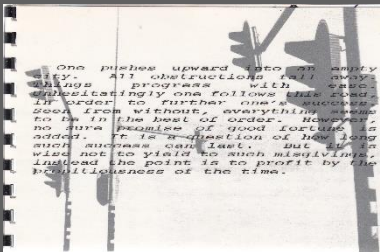 One pushes upward into an empty
city. All obstructions fall away.
Things progress with ease.
Unhesitatingly one follows this road,
in order to further one's success.
Seen from without, everything seems
to be in the best of order. However,
no sure promise of good fortune is
added. It is a question of how long
such success can last. But it is
wise not to yield to such misgivings,
instead the point is to profit by the
propitiousness of the time.